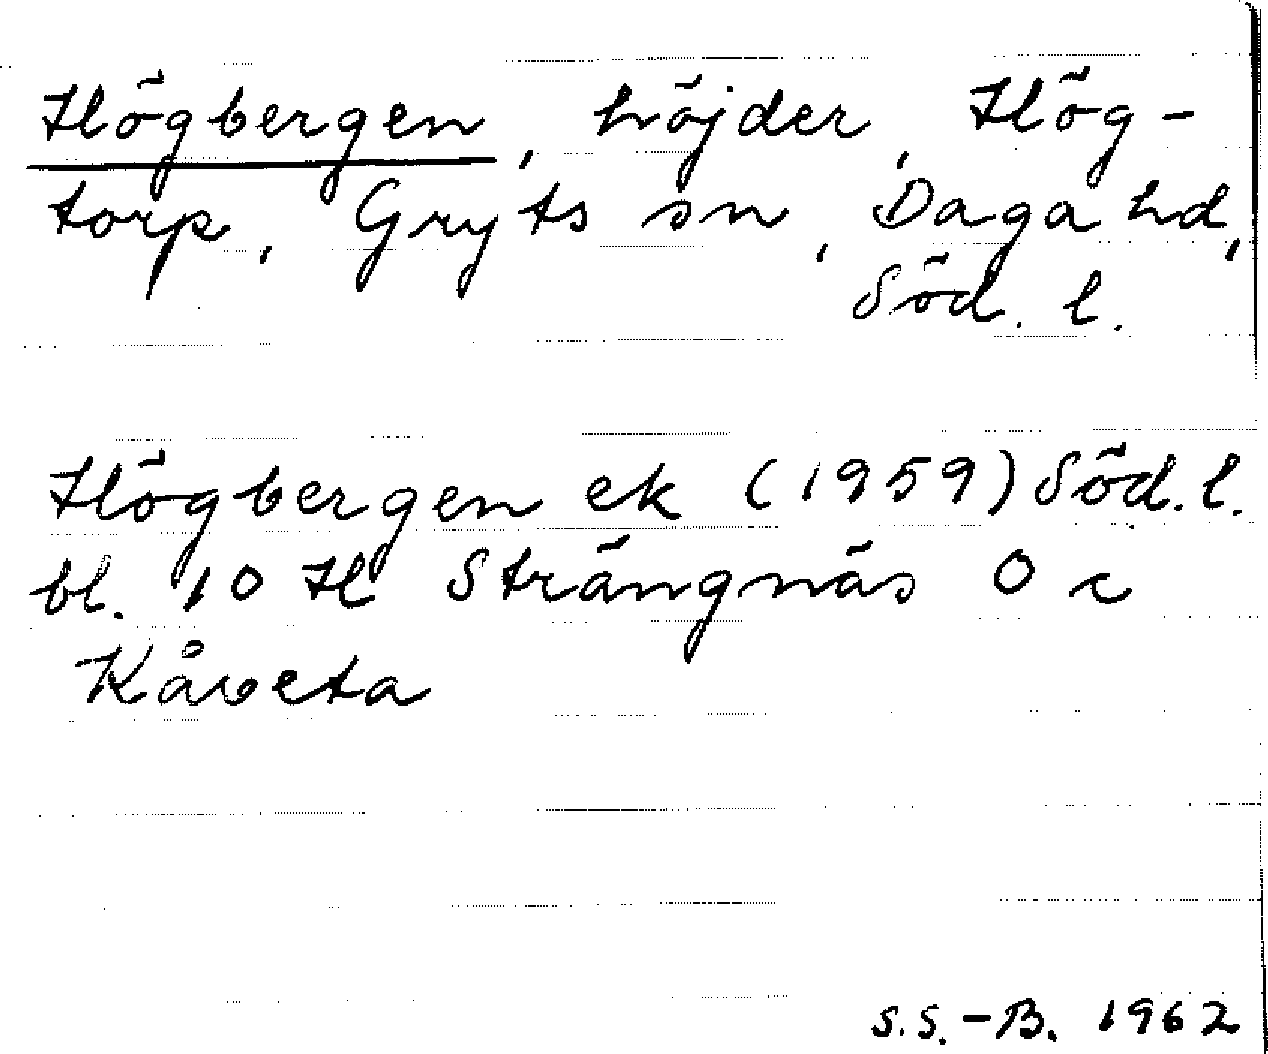 Högbergen, höjder, Hög-
torp, Gryts sn, Daga hd,
Söd. l.
Högbergen ek (1959) Söd. l.
bl. 10 H Strängnäs O c
Kåveta
S.S.-B. 1962